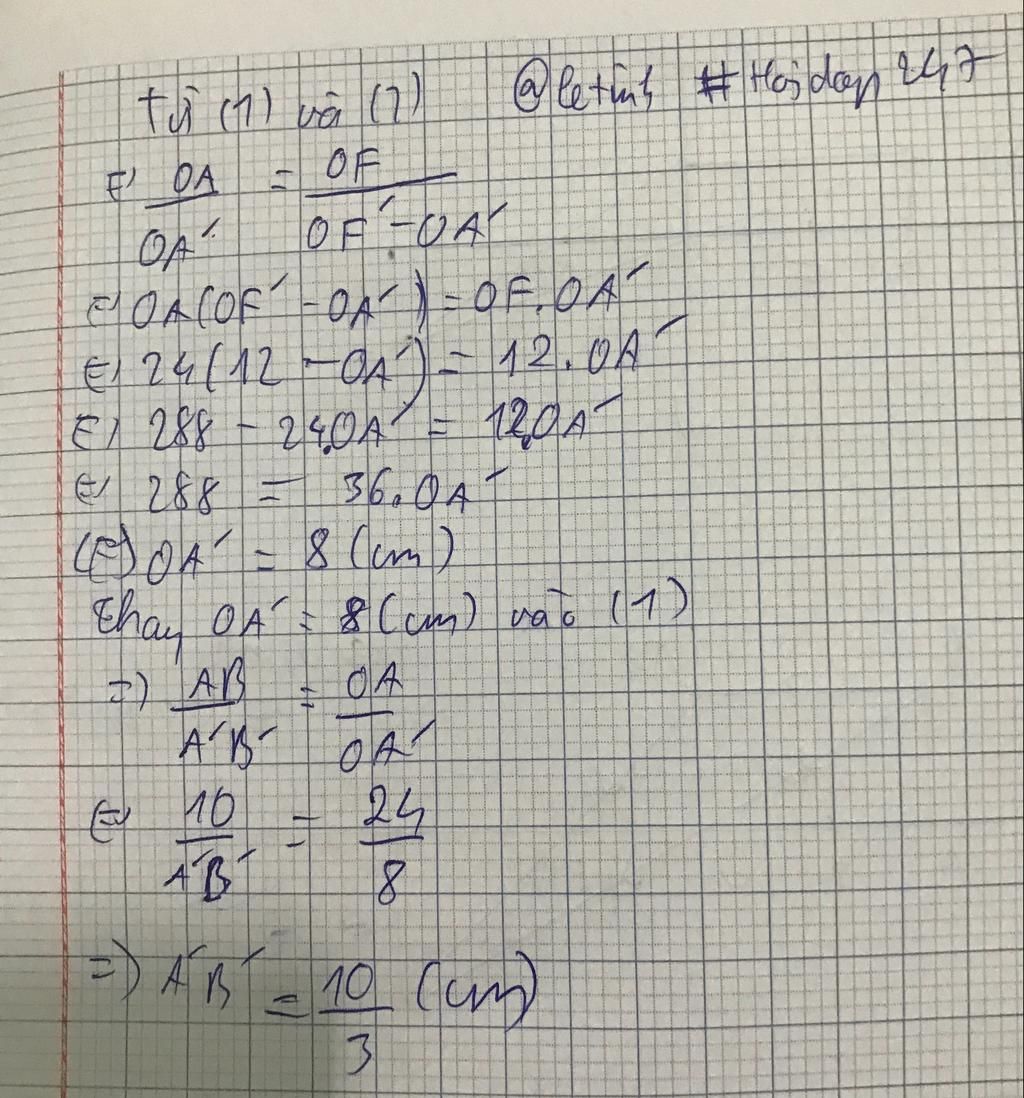 Từ (1) và (2) @letinh #Hoidap247
⇔ OA/OA' = OF/OF' - OA'
⇔ OA(OF' - OA') = OF.OA'
⇔ 24(12 - OA') = 12.OA'
⇔ 288 - 24.OA' = 12.OA'
⇔ 288 = 36.OA'
(⇔) OA' = 8 (cm)
thay OA' = 8 (cm) vào (1)
=> AB/A'B' = OA/OA'
⇔ 10/A'B' = 24/8
=> A'B' = 10/3 (cm)